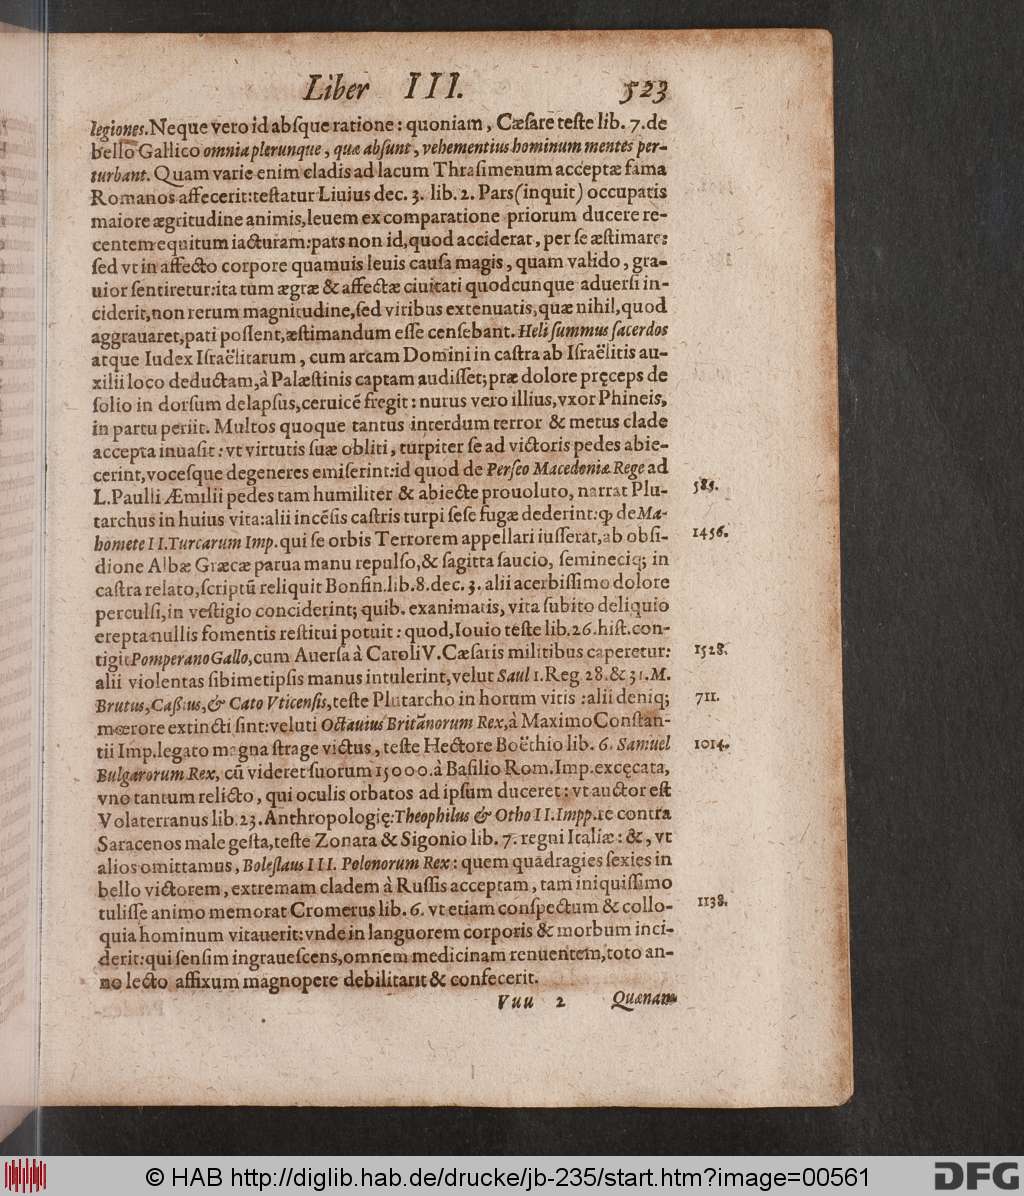 Liber III. 523
legiones. Neque vero id abſque ratione: quoniam, Cæſare teſte lib. 7. de
bello Gallico omnia plerunque, quæ abſunt, vehementius hominum mentes per-
turbant. Quam varie enim cladis ad lacum Thraſimenum acceptæ fama
Romanos affecerit: teſtatur Liuius dec. 3. lib. 2. Pars (inquit) occupatis
maiore ægritudine animis, leuem ex comparatione priorum ducere re-
centem equitum iacturam: pars non id, quod acciderat, per ſe æſtimare:
ſed vt in affecto corpore quamuis leuis cauſa magis, quam valido, gra-
uior ſentiretur: ita tum ægræ & affectæ ciuitati quodcunque aduerſi in-
ciderit, non rerum magnitudine, ſed viribus extenuatis, quæ nihil, quod
aggrauaret, pati poſſent, æſtimandum eſſe cenſebant. Heli ſummus ſacerdos
atque Iudex Iſraëlitarum, cum arcam Domini in caſtra ab Iſraëlitis au-
xilii loco deductam, à Palæſtinis captam audiſſet; præ dolore pręceps de
ſolio in dorſum delapſus, ceruicē fregit: nurus vero illius, vxor Phineis,
in partu periit. Multos quoque tantus interdum terror & metus clade
accepta inuaſit: vt virtutis ſuæ obliti, turpiter ſe ad victoris pedes abie-
cerint, voceſque degeneres emiſerint: id quod de Perſeo Macedoniæ Rege ad
L. Paulli Æmilii pedes tam humiliter & abiecte prouoluto, narrat Plu- 585.
tarchus in huius vita: alii incēſis caſtris turpi ſeſe fugæ dederint: ꝙ de Ma-
homete II. Turcarum Imp. qui ſe orbis Terrorem appellari iuſſerat, ab obſi- 1456.
dione Albæ Græcæ parua manu repulſo, & ſagitta ſaucio, ſemineciq; in
caſtra relato, ſcriptū reliquit Bonfin. lib. 8. dec. 3. alii acerbiſſimo dolore
perculſi, in veſtigio conciderint; quib. exanimatis, vita ſubito deliquio
erepta nullis fomentis reſtitui potuit: quod, Iouio teſte lib. 26. hiſt. con-
tigit Pomperano Gallo, cum Auerſa à Caroli V. Cæſaris militibus caperetur: 1528.
alii violentas ſibimetipſis manus intulerint, velut Saul 1. Reg. 28. & 31. M.
Brutus, Caſſius, & Cato Vticenſis, teſte Plutarcho in horum vitis: alii deniq; 711.
mœrore extincti ſint: veluti Octauius Britānorum Rex, à Maximo Conſtan-
tii Imp. legato magna ſtrage victus, teſte Hectore Boëthio lib. 6. Samuel 1014.
Bulgarorum Rex, cū videret ſuorum 15000. à Baſilio Rom. Imp. excęcata,
vno tantum relicto, qui oculis orbatos ad ipſum duceret: vt auctor eſt
Volaterranus lib. 23. Anthropologię: Theophilus & Otho II. Impp. re contra
Saracenos male geſta, teſte Zonara & Sigonio lib. 7. regni Italiæ: &, vt
alios omittamus, Boleſlaus III. Polonorum Rex: quem quadragies ſexies in
bello victorem, extremam cladem à Ruſſis acceptam, tam iniquiſſimo
tuliſſe animo memorat Cromerus lib. 6. vt etiam conſpectum & collo- 1138.
quia hominum vitauerit: vnde in languorem corporis & morbum inci-
derit: qui ſenſim ingraueſcens, omnem medicinam renuentem, toto an-
no lecto affixum magnopere debilitarit & confecerit.
Vuu 2 Quænam
© HAB http://diglib.hab.de/drucke/jb-235/start.htm?image=00561
DFG